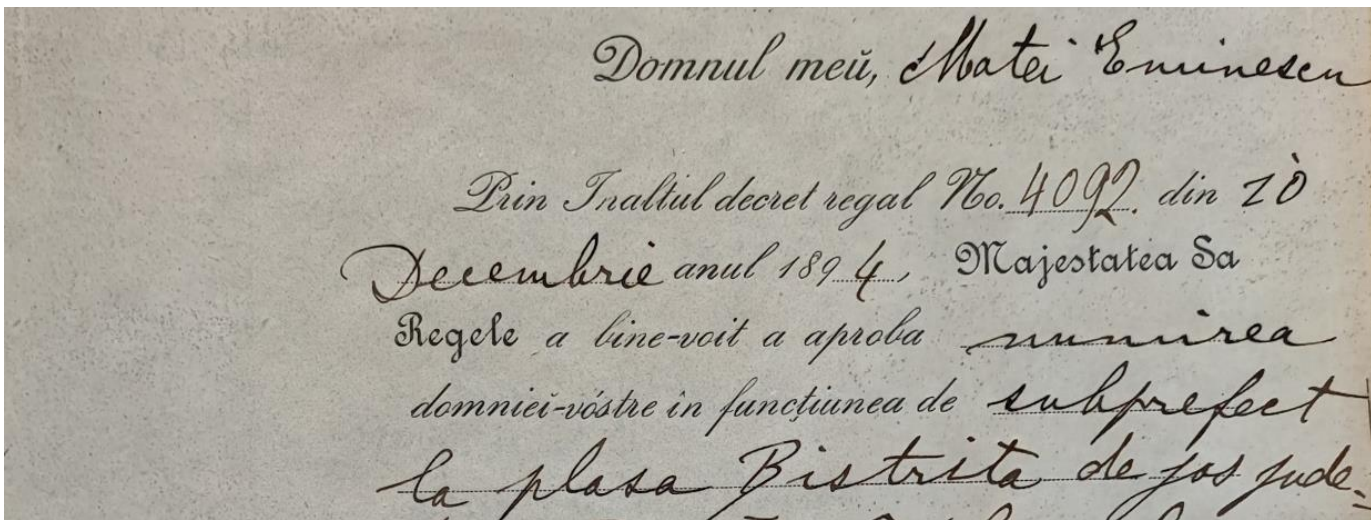 Domnul meŭ, Matei Eminescu
Prin Inaltul decret regal No. 4092. din 20
Decembrie anul 1894, Majestatea Sa
Regele a bine-voit a aproba numirea
domnieĭ-vóstre in funcțiunea de subprefect
la plasa Bistrita de jos jude-